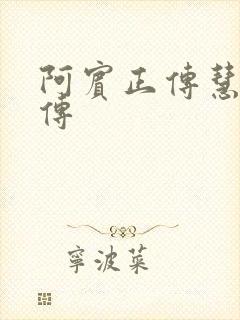 阿賓正傳慧
傳
寧波菜